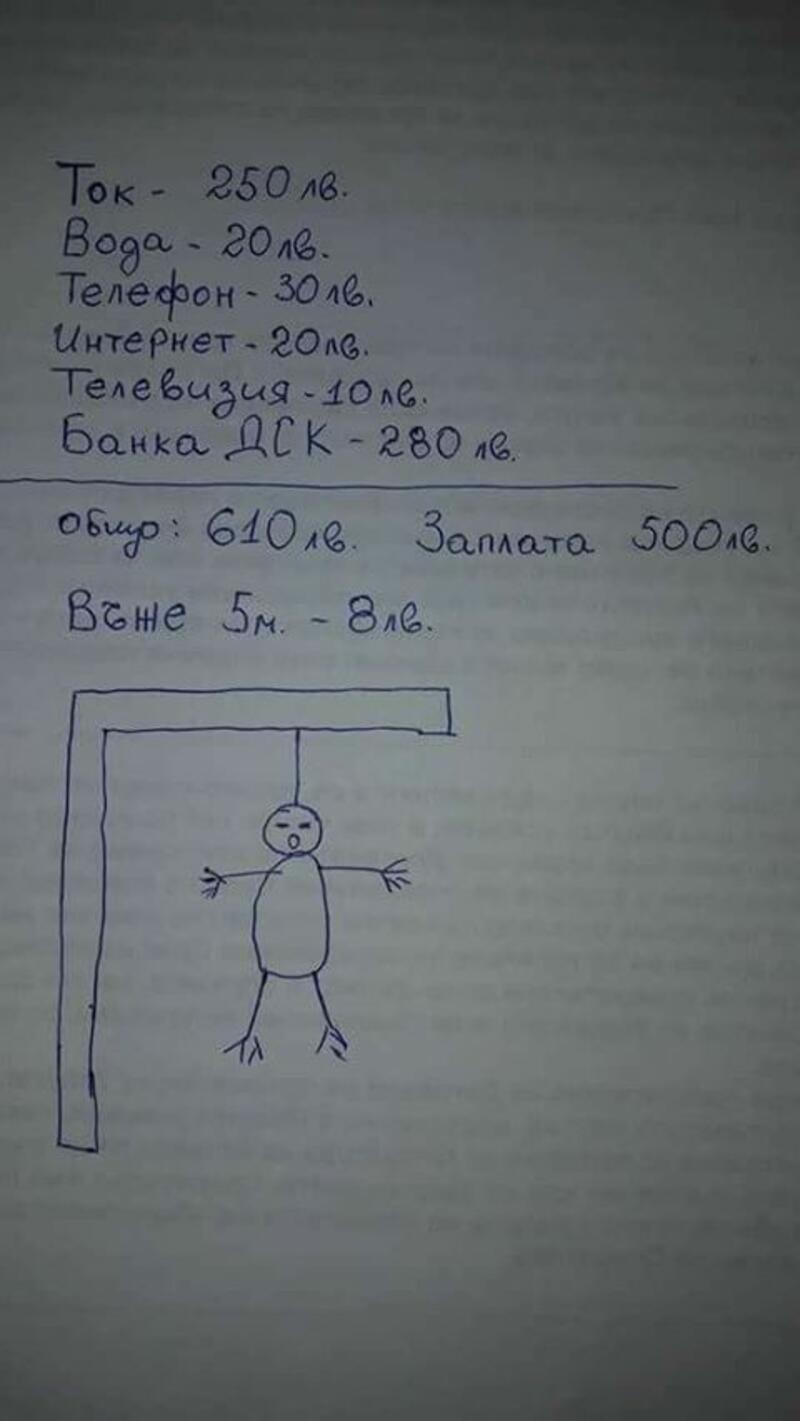 Ток - 250 лв.
Вода - 20 лв.
Телефон - 30 лв.
Интернет - 20 лв.
Телевизия - 10 лв.
Банка ДСК - 280 лв.
общо: 610 лв. Заплата 500 лв.
Въже 5 м. - 8 лв.